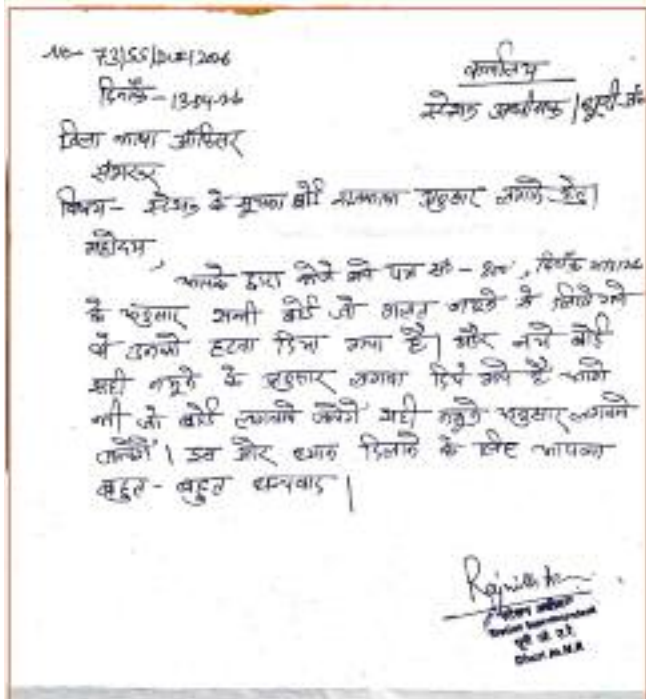 No- 73/SS/DUI/2026
दिनाँक - 13-04-26
कार्यालय
स्टेशन अधीक्षक / धूरी जं०
जिला भाषा ऑफिसर
संगरूर
विषय - स्टेशन के सूचना बोर्ड अनुसार लगाने हेतु।
महोदय,
आपके द्वारा भेजे गये पत्र सं - दिनाँक
के अनुसार सभी बोर्ड जो गलत नमूने से लिखे गये
थे उनको हटवा दिया गया है। और नये बोर्ड
सही नमूने के अनुसार लगवा दिये गये है आगे
भी जो बोर्ड लगवाये जायेंगे सही नमूने अनुसार लगवाये
जायेंगे। इस ओर ध्यान दिलाने के लिए आपका
बहुत - बहुत धन्यवाद।
स्टेशन अधीक्षक
Station Superintendent
धूरी जं. उ.रे.
Dhuri Jn. N.R